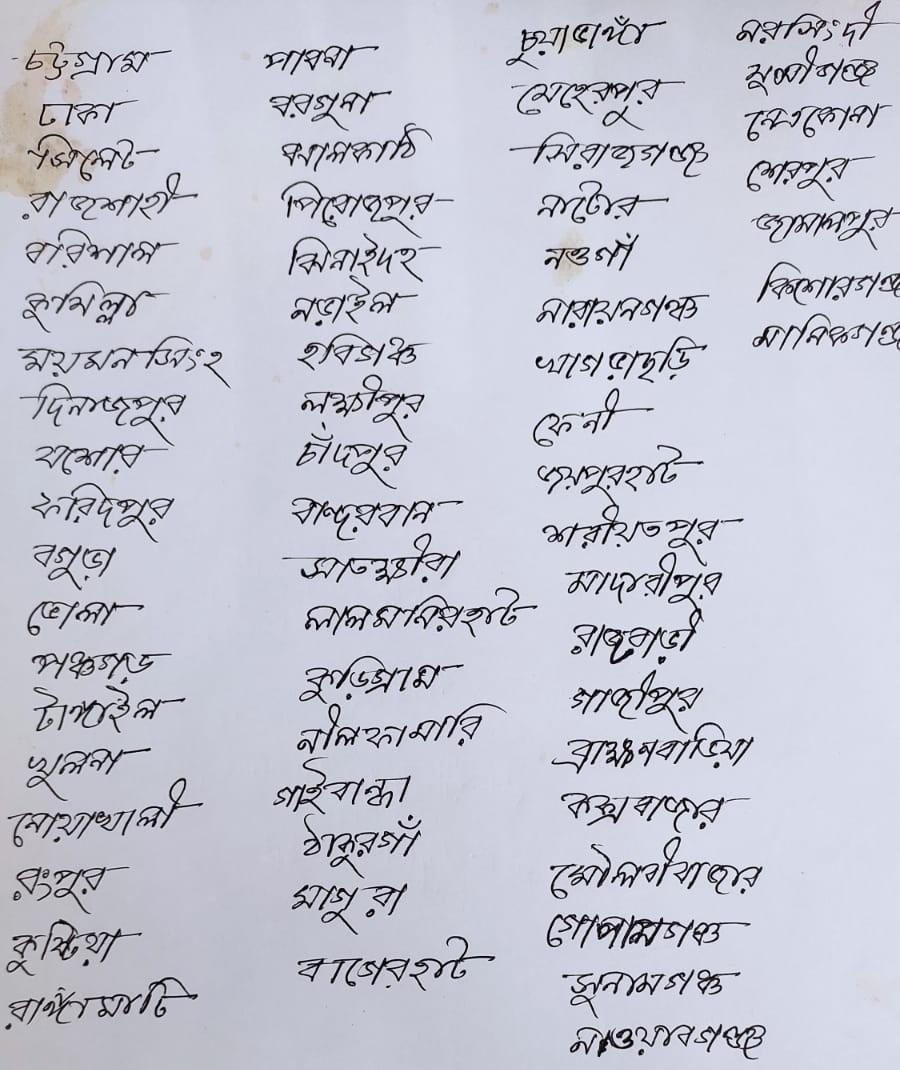 চট্টগ্রাম
ঢাকা
সিলেট
রাজশাহী
বরিশাল
কুমিল্লা
ময়মনসিংহ
দিনাজপুর
যশোর
ফরিদপুর
বগুড়া
ভোলা
পঞ্চগড়
টাঙ্গাইল
খুলনা
নোয়াখালী
রংপুর
কুষ্টিয়া
রাঙ্গামাটি
পাবনা
বরগুনা
ঝালকাঠি
পিরোজপুর
ঝিনাইদহ
নড়াইল
হবিগঞ্জ
লক্ষ্মীপুর
চাঁদপুর
বান্দরবান
সাতক্ষীরা
লালমনিরহাট
কুড়িগ্রাম
নীলফামারি
গাইবান্ধা
ঠাকুরগাঁ
মাগুরা
বাগেরহাট
চুয়াডাঙ্গাঁ
মেহেরপুর
সিরাজগঞ্জ
নাটোর
নওগাঁ
নারায়নগঞ্জ
খাগড়াছড়ি
ফেনী
জয়পুরহাট
শরীয়তপুর
মাদারীপুর
রাজবাড়ী
গাজীপুর
ব্রাহ্মনবাড়িয়া
কক্সবাজার
মৌলবীবাজার
গোপালগঞ্জ
সুনামগঞ্জ
নাওয়াবগঞ্জ
নরসিংদী
মুন্সীগঞ্জ
নেত্রকোনা
শেরপুর
জামালপুর
কিশোরগঞ্জ
মানিকগঞ্জ